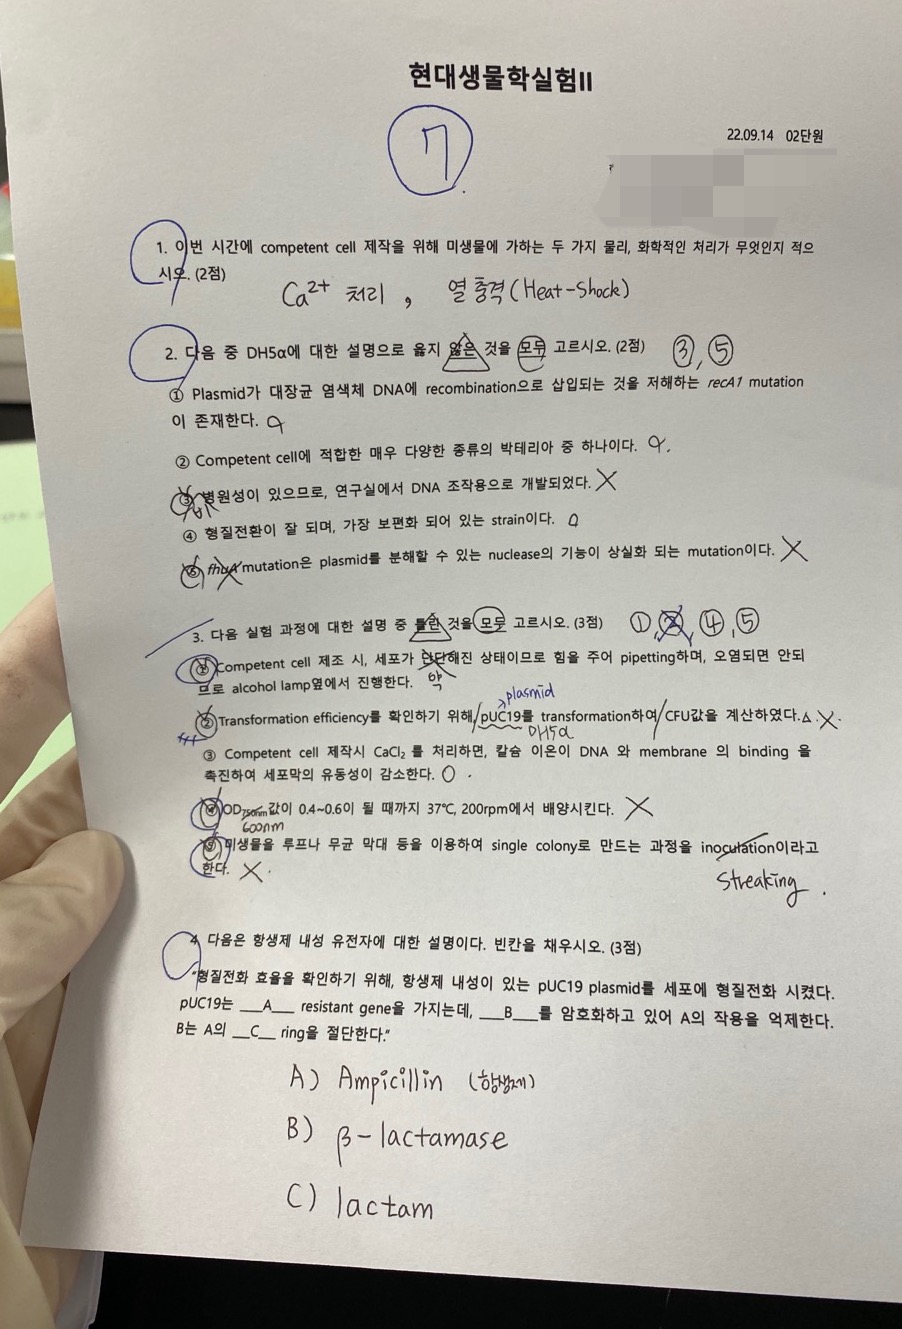 현대생물학실험II
7
22.09.14 02단원
1. 이번 시간에 competent cell 제작을 위해 미생물에 가하는 두 가지 물리, 화학적인 처리가 무엇인지 적으
시오. (2점)
Ca2+ 처리, 열충격(Heat-Shock)
2. 다음 중 DH5α에 대한 설명으로 옳지 않은 것을 모두 고르시오. (2점) ③, ⑤
① Plasmid가 대장균 염색체 DNA에 recombination으로 삽입되는 것을 저해하는 recA1 mutation
이 존재한다.
② Competent cell에 적합한 매우 다양한 종류의 박테리아 중 하나이다.
③ 병원성이 있으므로, 연구실에서 DNA 조작용으로 개발되었다. X
비
④ 형질전환이 잘 되며, 가장 보편화 되어 있는 strain이다. O
⑤ fhuA mutation은 plasmid를 분해할 수 있는 nuclease의 기능이 상실화 되는 mutation이다. X
3. 다음 실험 과정에 대한 설명 중 틀린 것을 모두 고르시오. (3점) ①, ②, ④, ⑤
① Competent cell 제조 시, 세포가 단단해진 상태이므로 힘을 주어 pipetting하며, 오염되면 안되
므로 alcohol lamp옆에서 진행한다.
약
plasmid
② Transformation efficiency를 확인하기 위해 pUC19를 transformation하여 CFU값을 계산하였다. △ X.
DH5α
③ Competent cell 제작시 CaCl2 를 처리하면, 칼슘 이온이 DNA 와 membrane 의 binding 을
촉진하여 세포막의 유동성이 감소한다. O.
④ OD750nm값이 0.4~0.6이 될 때까지 37℃, 200rpm에서 배양시킨다. X
600nm
⑤ 미생물을 루프나 무균 막대 등을 이용하여 single colony로 만드는 과정을 inoculation이라고
한다. X.
Streaking.
4. 다음은 항생제 내성 유전자에 대한 설명이다. 빈칸을 채우시오. (3점)
"형질전화 효율을 확인하기 위해, 항생제 내성이 있는 pUC19 plasmid를 세포에 형질전화 시켰다.
pUC19는 ___A___ resistant gene을 가지는데, ___B___를 암호화하고 있어 A의 작용을 억제한다.
B는 A의 __C__ ring을 절단한다."
A) Ampicillin (항생제)
B) β-lactamase
C) lactam